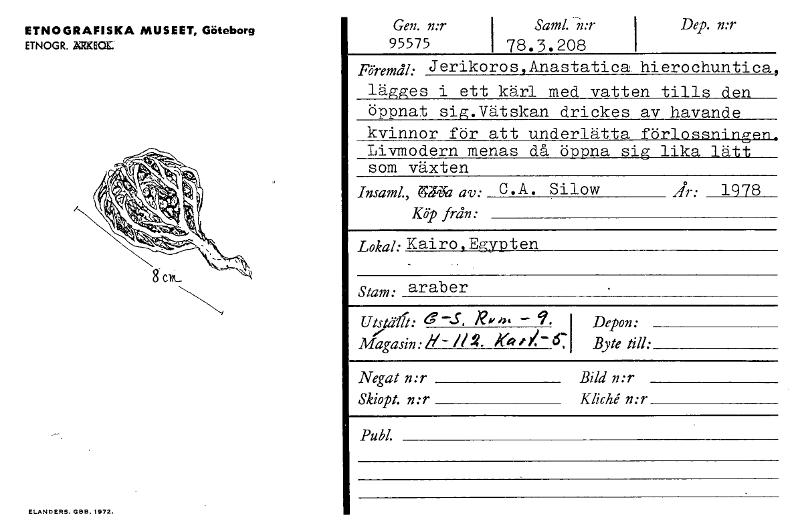 ETNOGRAFISKA MUSEET, Göteborg
ETNOGR. ARKEOL.
8 cm
Gen. n:r Saml. n:r Dep. n:r
95575 78.3.208
Föremål: Jerikoros,Anastatica hierochuntica,
lägges i ett kärl med vatten tills den
öppnat sig.Vätskan drickes av havande
kvinnor för att underlätta förlossningen.
Livmodern menas då öppna sig lika lätt
som växten
Insaml., Gåva av: C.A. Silow År: 1978
Köp från:
Lokal: Kairo,Egypten
Stam: araber
Utställt: G-S. Rum - 9. Depon:
Magasin: H-112. Kart.-5. Byte till:
Negat n:r Bild n:r
Skiopt. n:r Kliché n:r
Publ.
ELANDERS. GBB. 1972.